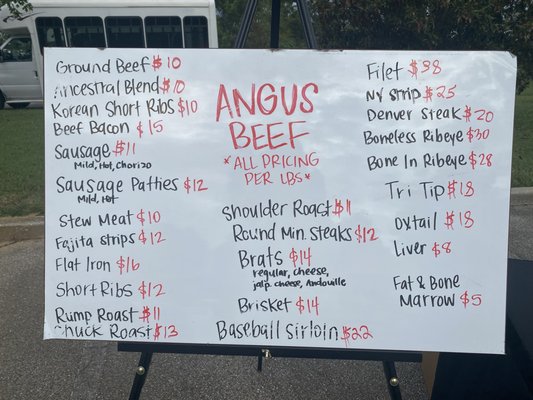 Ground Beef $10
Ancestral Blend $10
Korean Short Ribs $10
Beef Bacon $15
Sausage $11
Mild, Hot, Chorizo
Sausage Patties $12
Mild, Hot
Stew Meat $10
Fajita strips $12
Flat Iron $16
Short Ribs $12
Rump Roast $11
Chuck Roast $13
ANGUS
BEEF
*ALL PRICING
PER LBS*
Shoulder Roast $11
Round Min. Steaks $12
Brats $14
regular, cheese,
jalp. cheese, Andouille
Brisket $14
Baseball Sirloin $22
Filet $38
NY Strip $25
Denver Steak $20
Boneless Ribeye $30
Bone In Ribeye $28
Tri Tip $18
Oxtail $18
Liver $8
Fat & Bone
Marrow $5